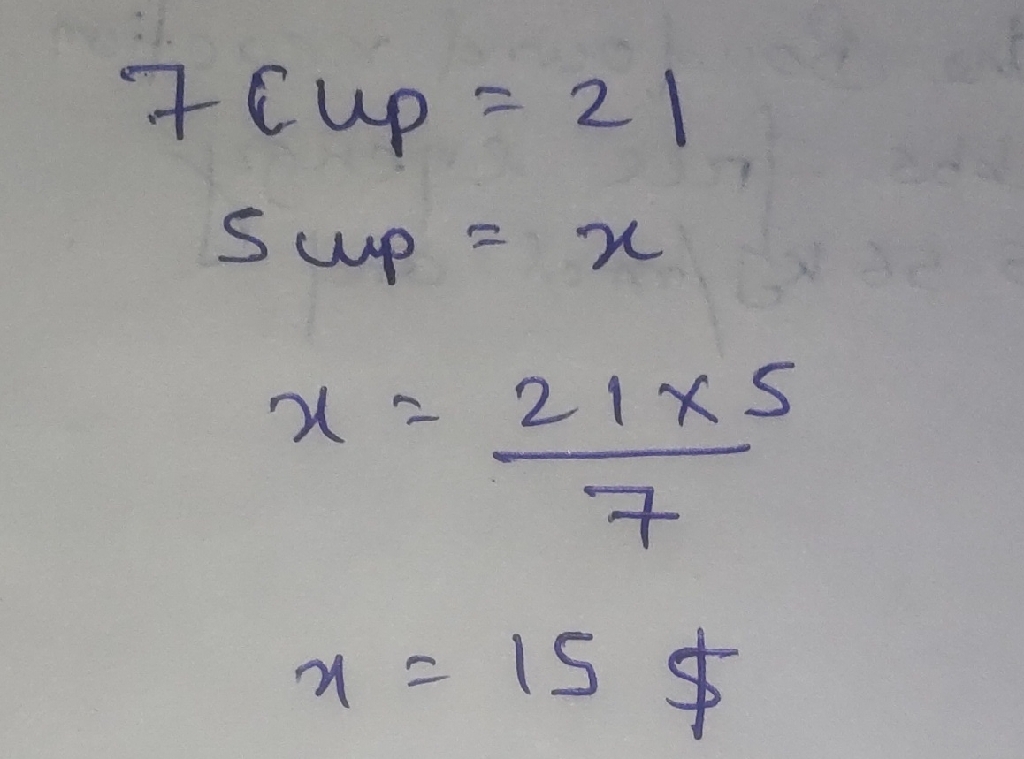 7 Cup = 21
5 cup = x
x = 21 x 5
7
x = 15 $